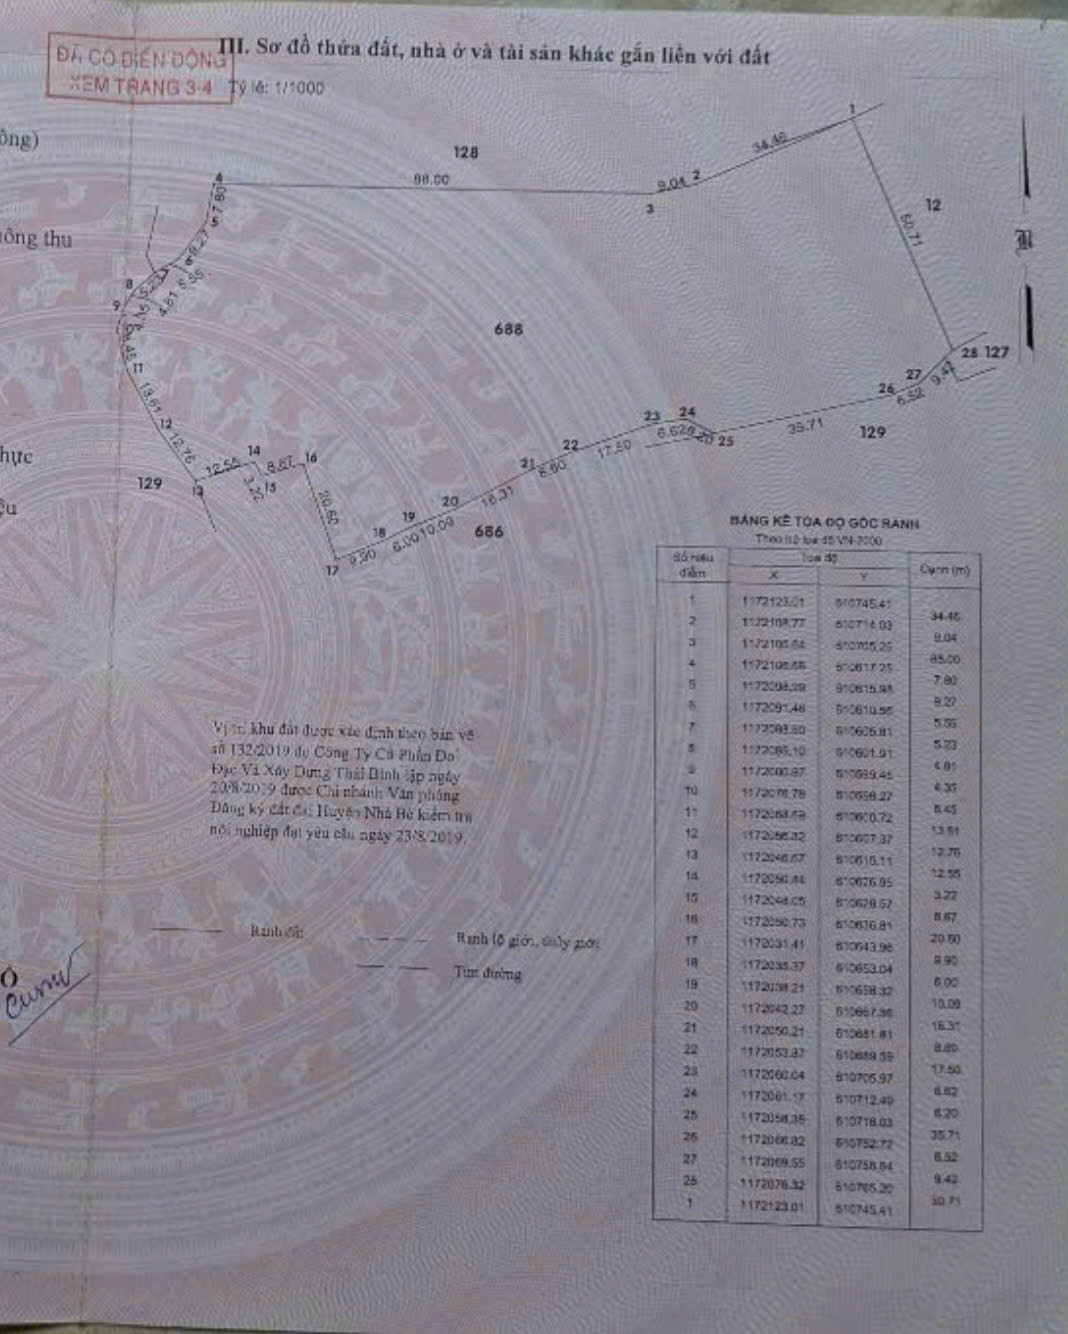 ĐÃ CÓ BIẾN ĐỘNG
XEM TRANG 3-4
III. Sơ đồ thửa đất, nhà ở và tài sản khác gắn liền với đất
Tỷ lệ: 1/1000
ông)
128
1
34.46
2
9.04
3
88.00
4
7.80
5
9.27
6
12
50.71
ông thu
8
5.23
5.55
4.81
9
688
28
127
27
9.42
6.52
26
11
13.61
12
12.76
23
24
6.62
25
35.71
129
22
17.50
hực
14
12.55
8.67
16
3.22
15
21
8.60
129
13
20.60
16.31
20
19
10.09
18
6.00
9.90
17
686
BẢNG KÊ TỌA ĐỘ GÓC RANH
Theo hệ tọa độ VN-2000
Số hiệu điểm
Tọa độ
X
Y
Cạnh (m)
1 1172123.01 610745.41
34.46
2 610714.03
9.04
3 610705.25
88.00
4 610617.25
7.80
5 1172098.29 610615.98
9.27
6 1172091.46
5.55
7 610605.81
5.23
8 1172085.10 610601.91
4.81
9
4.35
10 1172076.78
6.45
11
13.61
12 610607.37
12.76
13 610615.11
12.55
14 610626.95
3.22
15 1172048.05
8.67
16 1172050.73
20.60
17 1172031.41
9.90
18 1172035.37 610653.04
6.00
19 1172038.21 610658.32
10.09
20 1172042.27
16.31
21 1172050.21 610681.81
8.60
22 610689.59
17.50
23 1172060.04 610705.97
6.62
24 1172061.17 610712.49
6.20
25 610718.03
35.71
26 1172066.82 610752.72
6.52
27 1172069.55
9.42
28 1172076.32 610765.20
50.71
1 1172123.01 610745.41
Vị trí khu đất được xác định theo bản vẽ
số 132/2019 do Công Ty Cổ Phần Đo
Đạc Và Xây Dựng Thái Bình lập ngày
20/8/2019 được Chi nhánh Văn phòng
Đăng ký đất đai Huyện Nhà Bè kiểm tra
nội nghiệp đạt yêu cầu ngày 23/8/2019.
Ranh đất
Ranh lộ giới, thủy giới
Tim đường